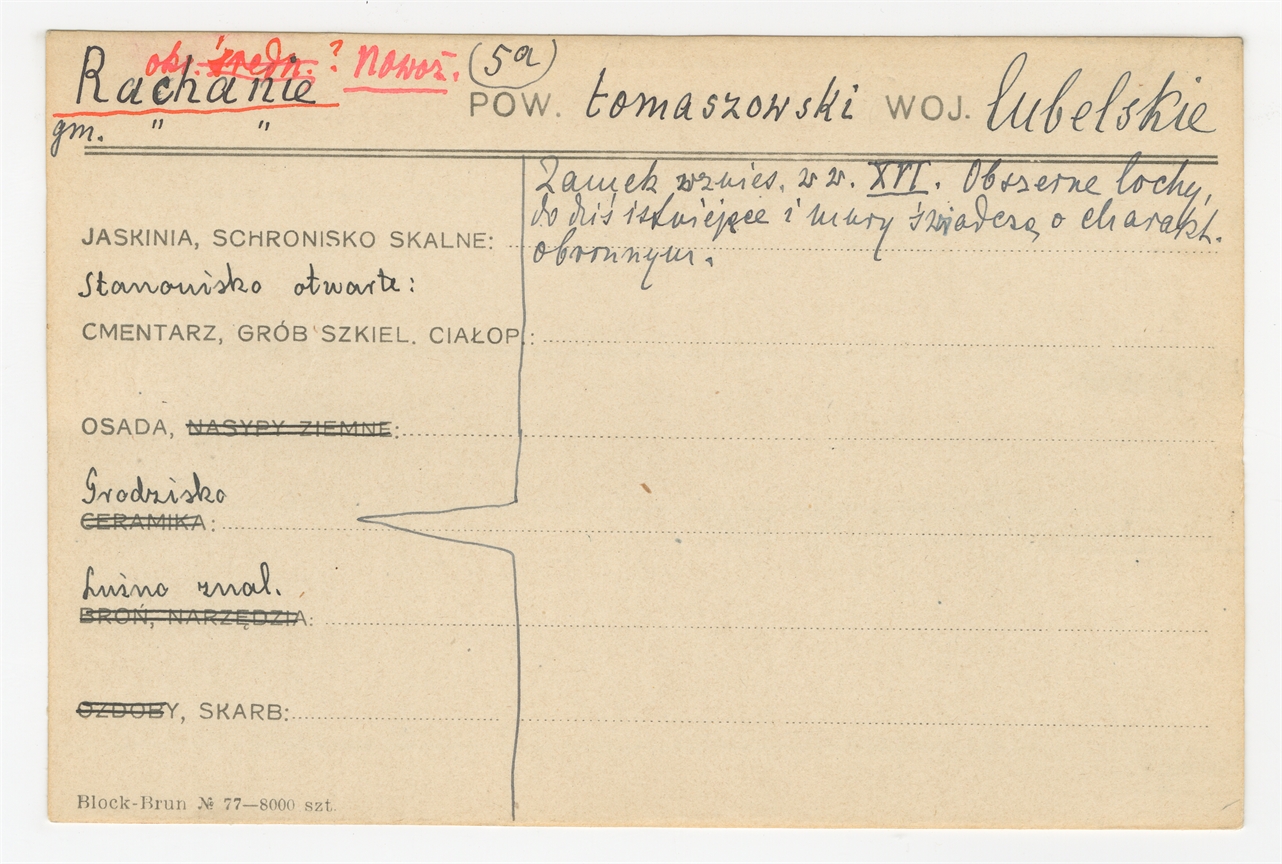 okr. średn.? Nowoż. (5a)
Rachanie POW. tomaszowski WOJ. lubelskie
gm. " "
Zamek wznies. w w. XVI. Obszerne lochy,
do dziś istniejące i mury świadczą o charakt.
obronnym.
JASKINIA, SCHRONISKO SKALNE:
Stanowisko otwarte:
CMENTARZ, GRÓB SZKIEL. CIAŁOP.:
OSADA, NASYPY ZIEMNE:
Grodzisko
CERAMIKA:
Luźno znal.
BROŃ, NARZĘDZIA:
OZDOBY, SKARB:
Block-Brun № 77—8000 szt.